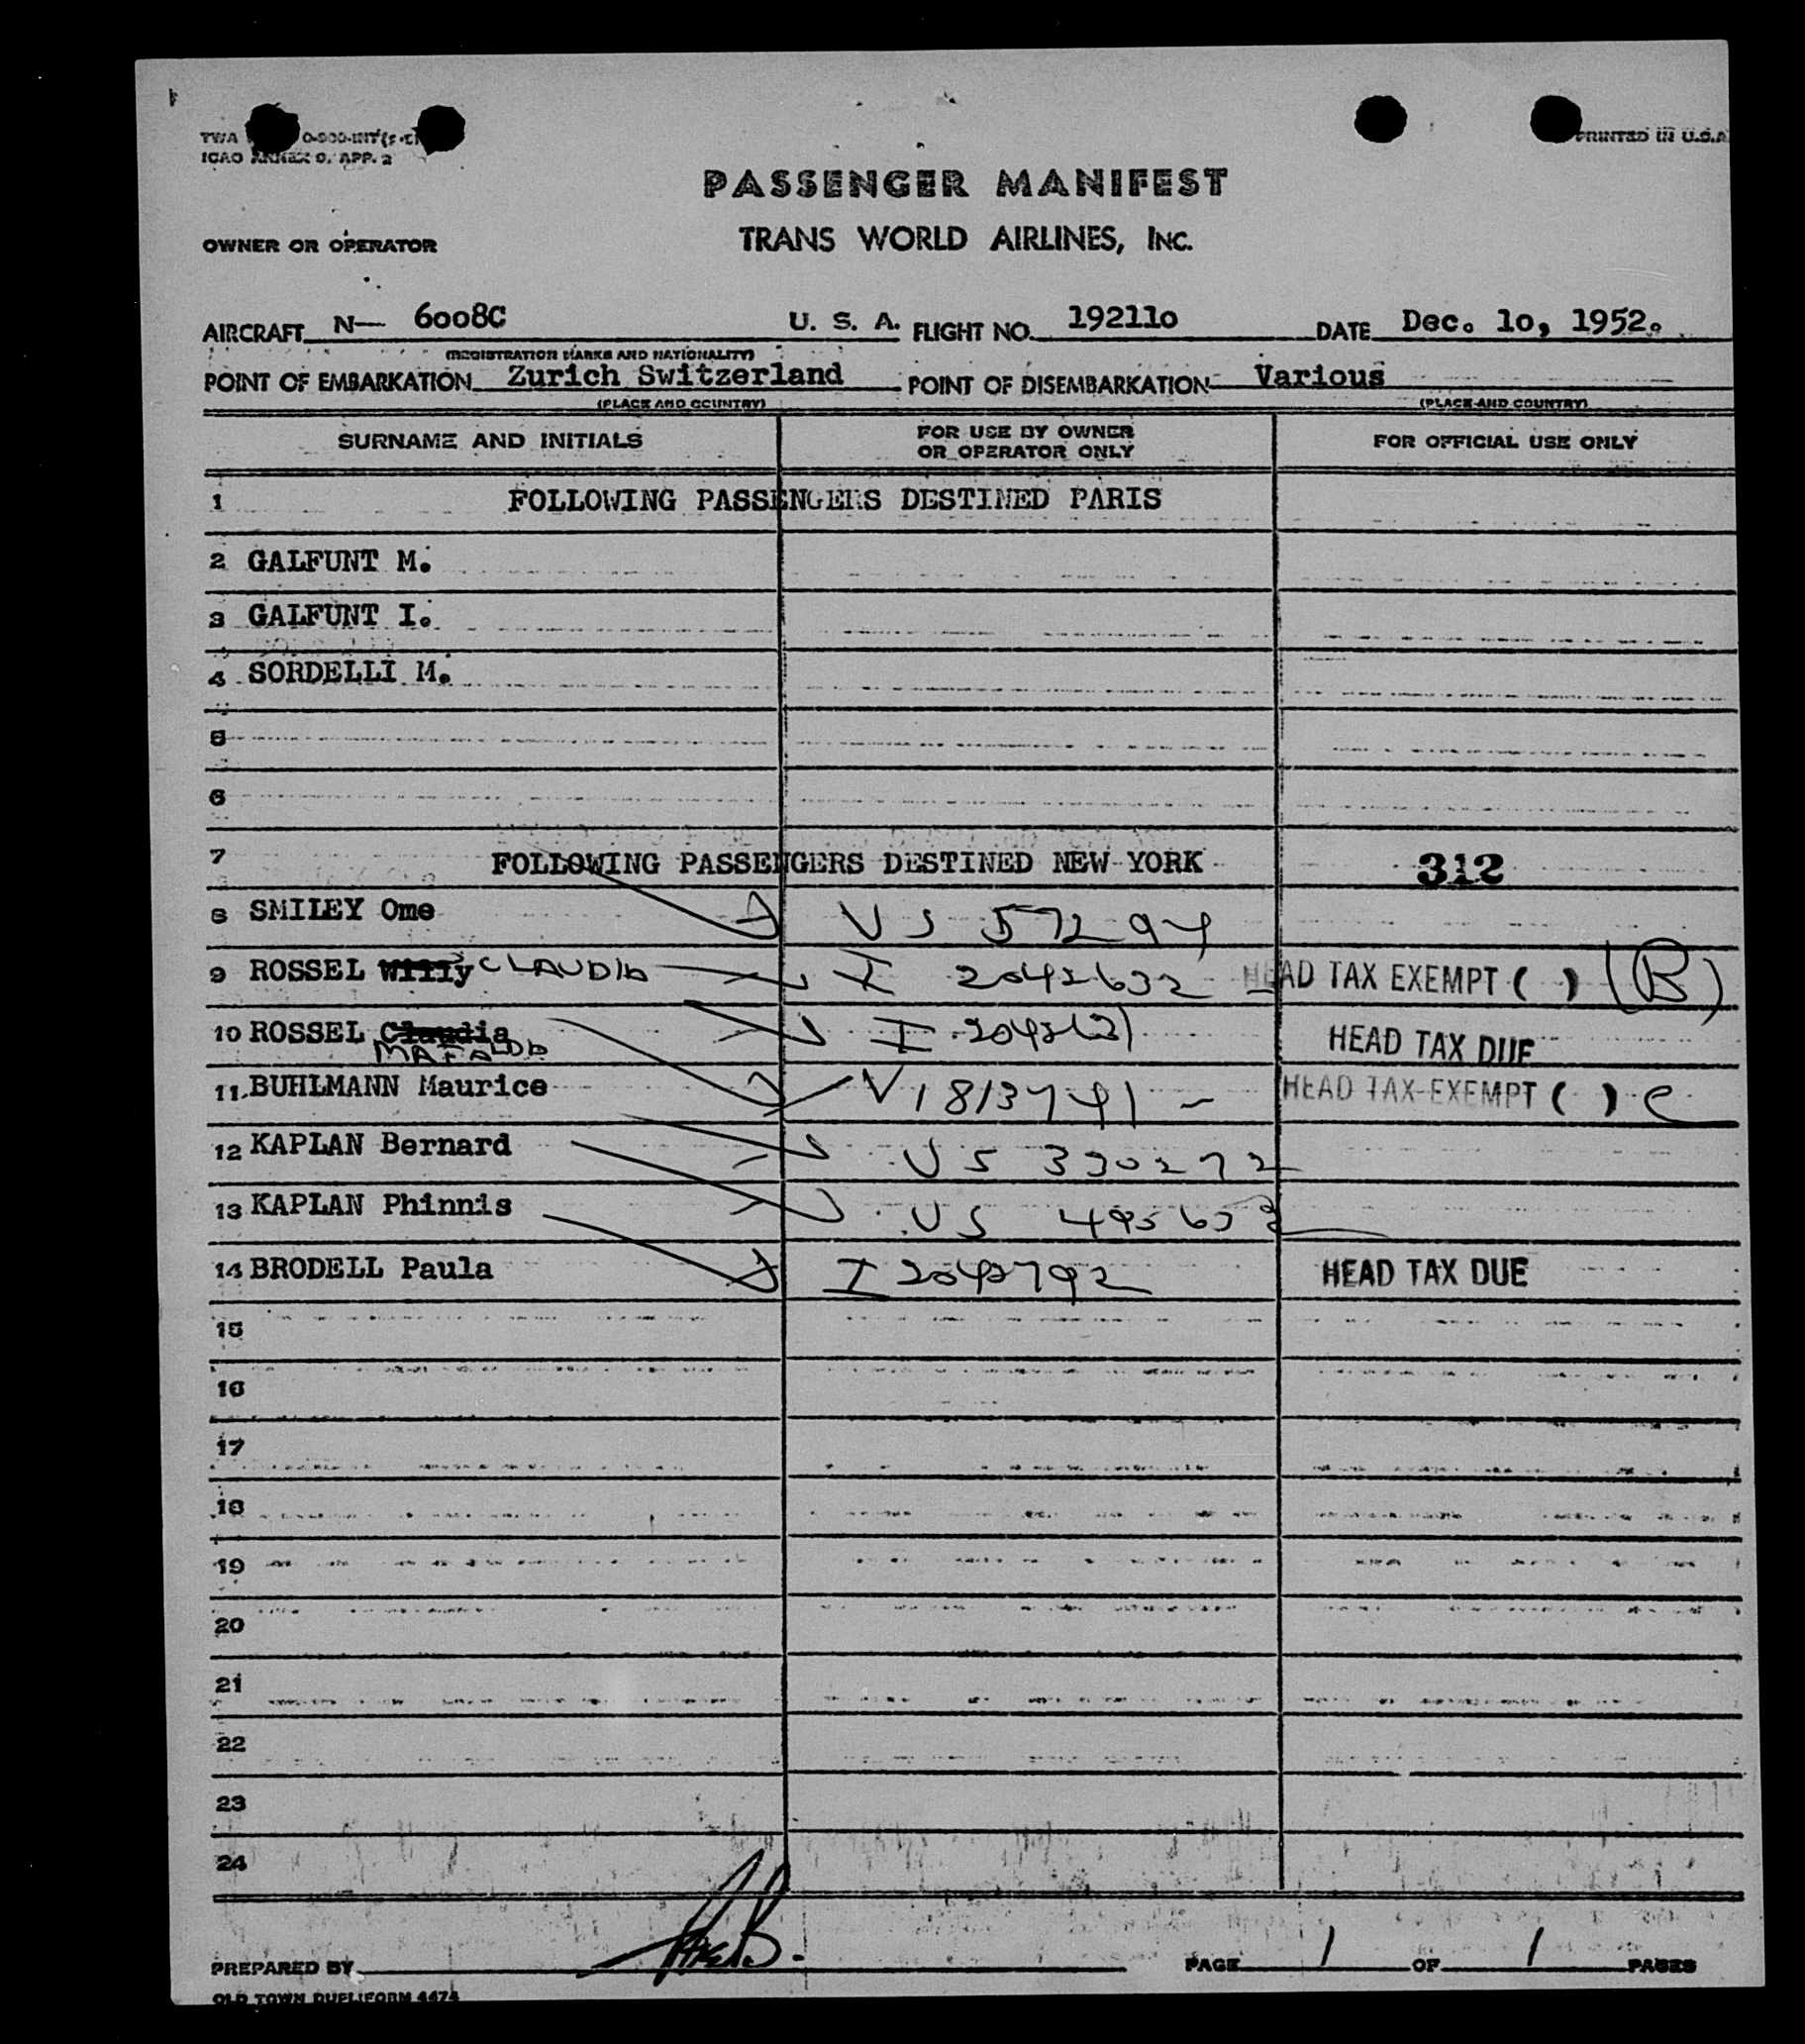 TWA 0-900-INT
ICAO ANNEX 9, APP. 2
PRINTED IN U.S.A
PASSENGER MANIFEST
TRANS WORLD AIRLINES, INC.
OWNER OR OPERATOR
AIRCRAFT N— 6008C U. S. A. FLIGHT NO. 192110 DATE Dec. 10, 1952.
(REGISTRATION MARKS AND NATIONALITY)
POINT OF EMBARKATION Zurich Switzerland POINT OF DISEMBARKATION Various
(PLACE AND COUNTRY) (PLACE AND COUNTRY)
SURNAME AND INITIALS FOR USE BY OWNER OR OPERATOR ONLY FOR OFFICIAL USE ONLY
1 FOLLOWING PASSENGERS DESTINED PARIS
2 GALFUNT M.
3 GALFUNT I.
4 SORDELLI M.
5
6
7 FOLLOWING PASSENGERS DESTINED NEW YORK 312
8 SMILEY Ome US 57294
9 ROSSEL Willy CLAUDIA I 2042632 HEAD TAX EXEMPT ( ) (B)
10 ROSSEL Claudia I HEAD TAX DUE
MAFALDA
11 BUHLMANN Maurice V1813741 HEAD TAX EXEMPT ( ) C
12 KAPLAN Bernard US 330272
13 KAPLAN Phinnis US
14 BRODELL Paula I 2042792 HEAD TAX DUE
15
16
17
18
19
20
21
22
23
24
PREPARED BY PAGE 1 OF 1 PAGES
OLD TOWN DUPLIFORM 4474